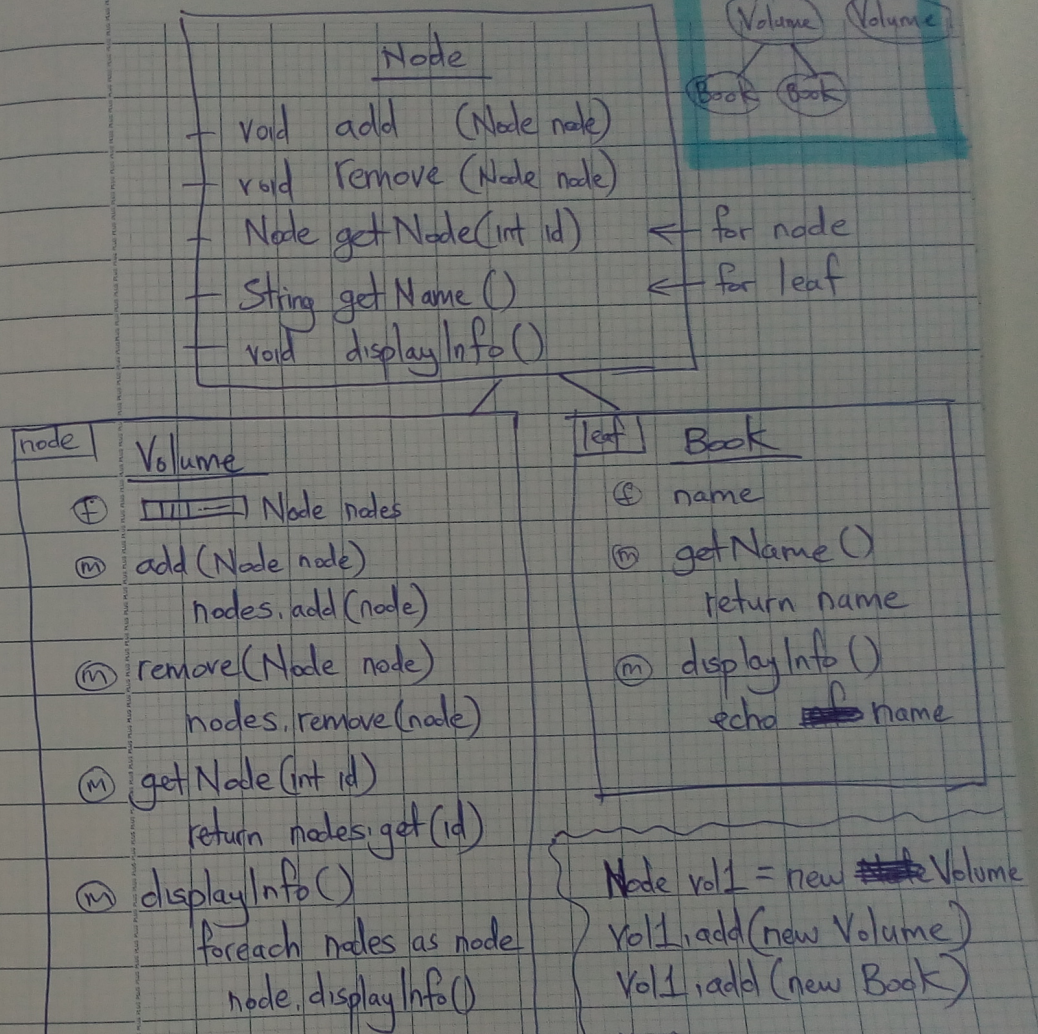 Volume Volume
Book Book
Node
void add (Node node)
void remove (Node node)
Node getNode(int id) ← for node
String getName () ← for leaf
void displayInfo ()
node
Volume
f Node nodes
m add (Node node)
nodes.add(node)
m remove(Node node)
nodes.remove(node)
m getNode(int id)
return nodes.get(id)
m displayInfo()
foreach nodes as node
node.displayInfo()
leaf
Book
f name
m getName ()
return name
m displayInfo ()
echo name
Node vol1 = new Volume
vol1.add(new Volume)
vol1.add(new Book)